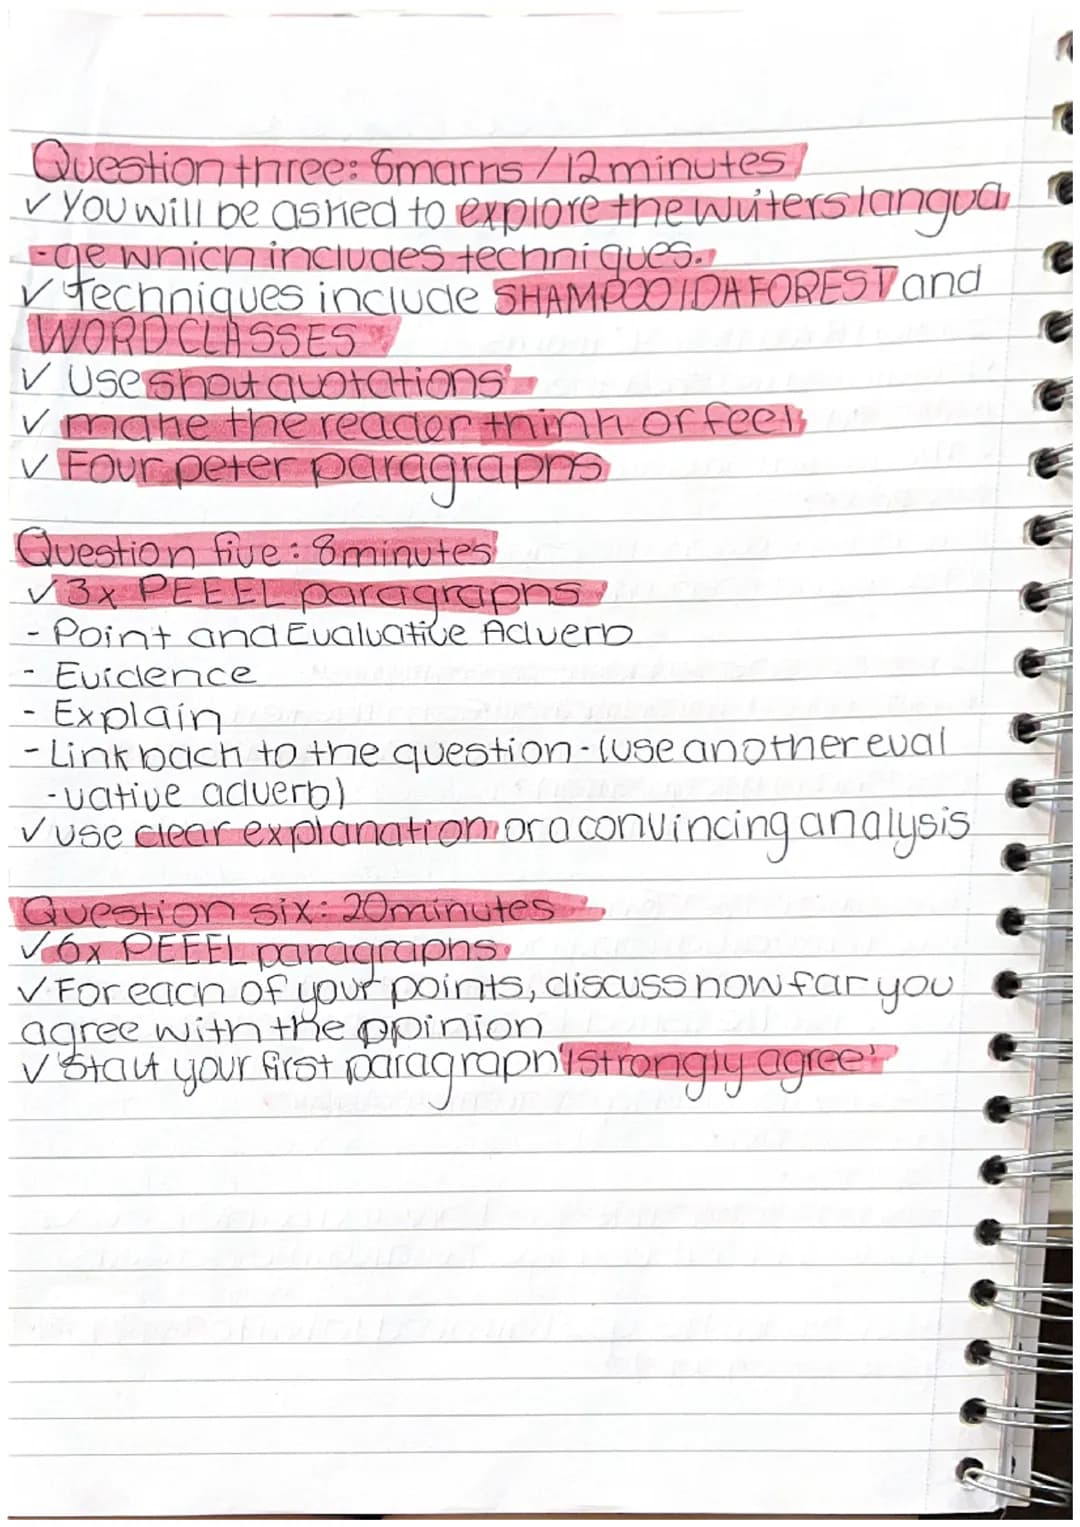 Question three: 6marks / 12 minutes
✓ You will be asked to explore the writers langua
-ge which includes techniques.
✓ Techniques include SHAMPOO IDAFOREST and
WORD CLASSES
✓ Use short quotations
✓ make the reader think or feel
✓ Four peter paragraphs
Question five: 8minutes
✓ 3x PEEEL paragraphs
- Point and Evaluative Adverb
- Evidence
- Explain
- Link back to the question - (use another eval
-uative adverb)
✓ use clear explanation or a convincing analysis
Question six: 20minutes
✓ 6x PEEEL paragraphs
✓ For each of your points, discuss how far you
agree with the opinion
✓ Start your first paragraph 'I strongly agree'